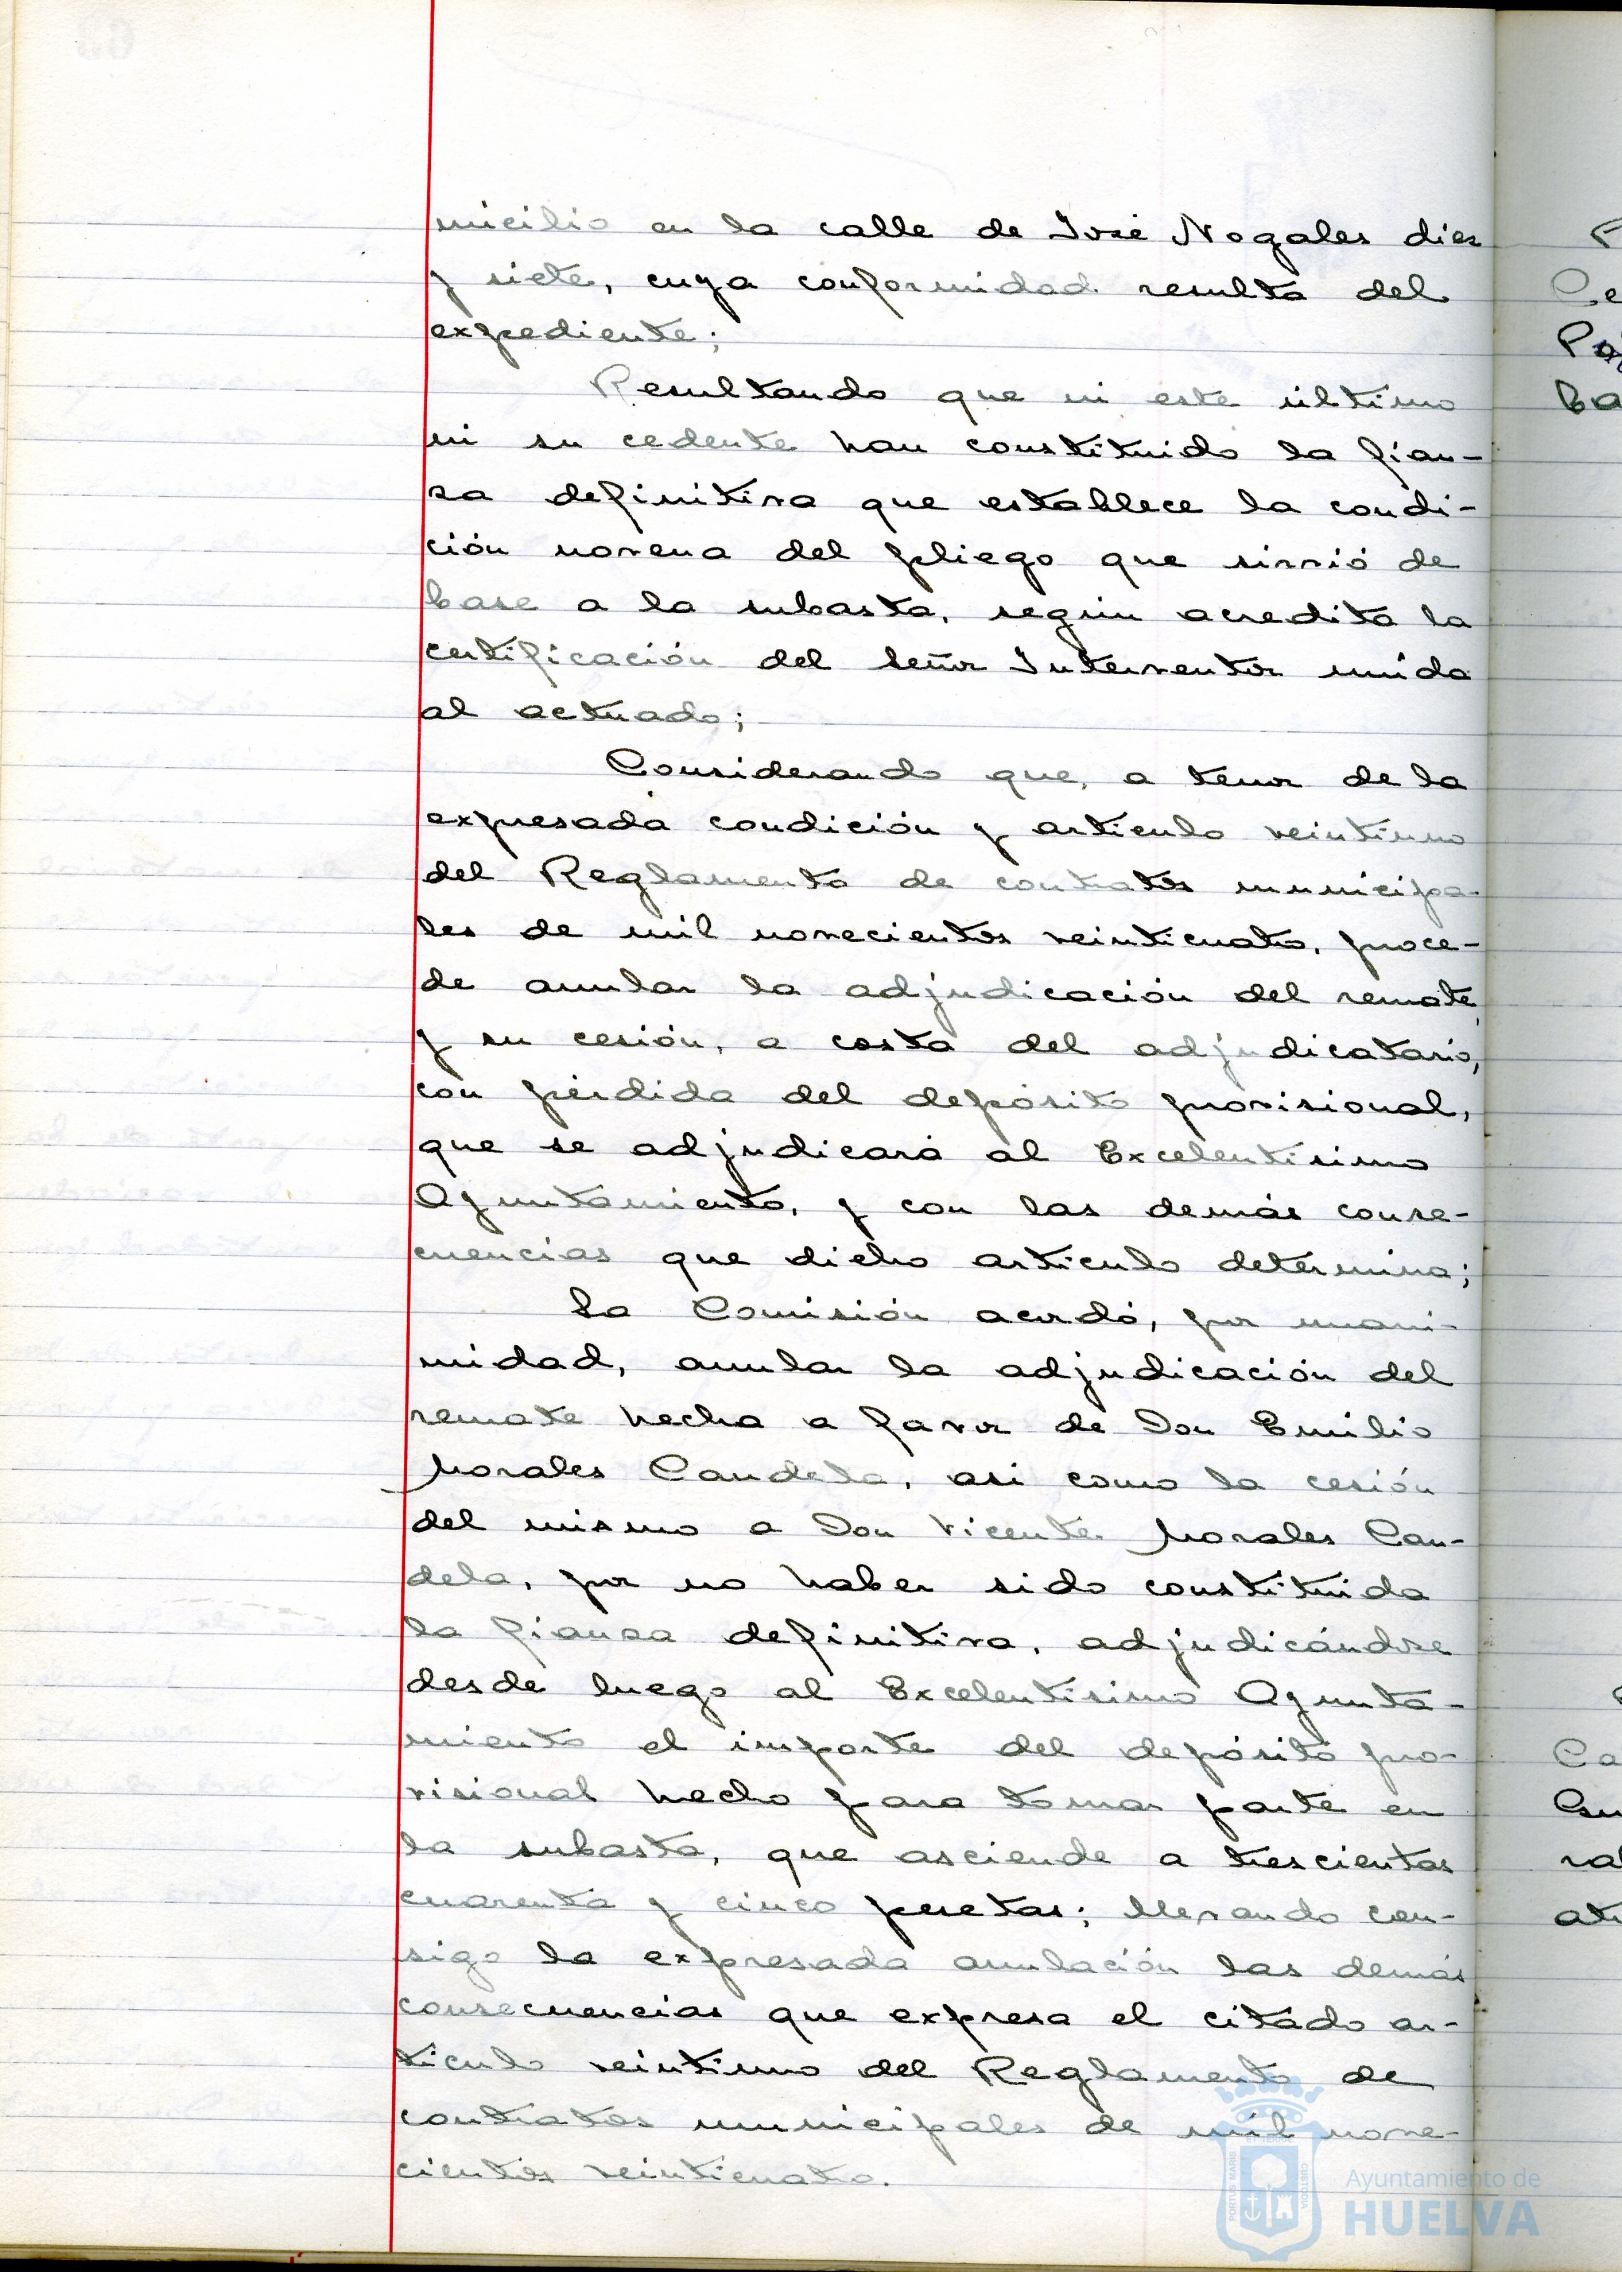 micilio en la calle de José Nogales diez
y siete, cuya conformidad resulta del
expediente;
Resultando que ni este último
ni su cedente han constituido la fian-
za definitiva que establece la condi-
ción novena del pliego que sirvió de
base a la subasta, según acredita la
certificación del Señor Interventor unida
al actuado;
Considerando que, a tenor de la
expresada condición y artículo veintiuno
del Reglamento de contratos municipa-
les de mil novecientos veinticuatro, proce-
de anular la adjudicación del remate
y su cesión, a costa del adjudicatario,
con pérdida del depósito provisional,
que se adjudicará al Excelentísimo
Ayuntamiento, y con las demás conse-
cuencias que dicho artículo determina;
La Comisión acordó, por unani-
midad, anular la adjudicación del
remate hecha a favor de Don Emilio
Morales Candela, así como la cesión
del mismo a Don Vicente Morales Can-
dela, por no haber sido constituida
la fianza definitiva, adjudicándose
desde luego al Excelentísimo Ayunta-
miento el importe del depósito pro-
visional hecho para tomar parte en
la subasta, que asciende a trescientas
cuarenta y cinco pesetas; llevando con-
sigo la expresada anulación las demás
consecuencias que expresa el citado ar-
tículo veintiuno del Reglamento de
contratos municipales de mil nove-
cientos veinticuatro.
PORTUS MARIS CUSTODIA
Ayuntamiento de
HUELVA